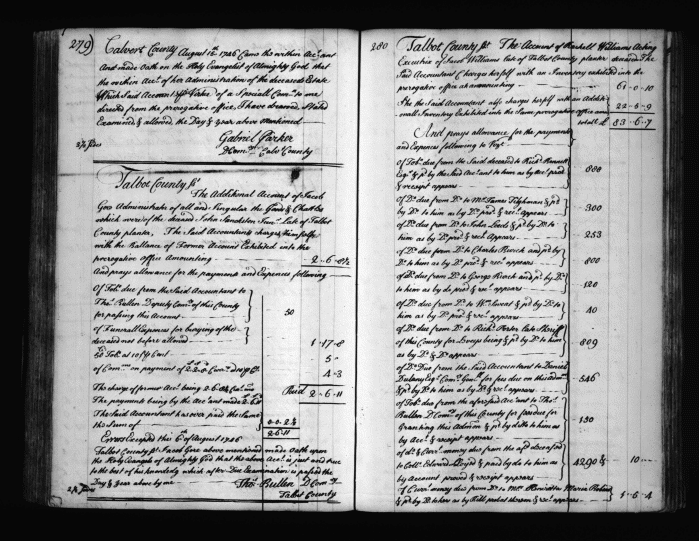 279)
Calvert County August 15th 1746 Came the within Acct.ant
And made Oath on the Holy Evangelist of Almighty God that
the within Acct. of her Administration of the deceased Estate
Which said Accountant Virtue of a Special Comn. to me
directed from the prerogative office, I have drawed, Stated
Examined & allowed, the Day & year above Mentioned
Gabriel Parker
D Com. Calvt. County
2/4 Sides
Talbot County Sst.
The Additional Account of Jacob
Goe Administrator of all and Singular the Goods & Chattles
which were of the deceased John Junr. Late of Talbot
County planter, The Said Accountant charges himselfe
with the Ballance of Former Account Exhibited into the
prerogative office Amounting 2 - 6 - 8½
And prays allowance for the payments and Expences following
Of Tobo. due from the Said Accountant to
Thos. Bullen Deputy Comy. of this County
for passing this Account 50
of Funerall Expences for burying of the
deceased not before allowed 1 - 17 - 8
50 Tobo. at 10/ 5
of Comn. on payment of 4 - 3
The charge of former Acct. being 2.6.8½
The payments being by the Acct. made 2.6.11 Paid 2 - 6 - 11
The Said Accountant has over paid the Same
the Sum of 0.0.2½
2.6.11
Errors Excepted this 6th of August 1746
Talbot County Sst. Jacob Goe above mentioned made Oath upon
the Holy Evangels of Almighty God that the above Acct. is just and true
to the best of his knowledg which after Due Examination is passed the
Day & year above by me
Tho. Bullen D Comy. of
Talbot County
2/4 Sides
280
Talbot County Sst. The Account of Rachell Williams Acting
Executrix of Williams Late of Talbot County planter deceased The
Said Accountant Charges herself with an Inventory exhibited into the
prerogative office amounting 61 - 0 - 10
She the Said Accountant also charges herself with an Additi-
onall Inventory Exhibited into the Same prerogative office amo. 22 - 6 - 9
totall £ 83 - 6 - 7
And prays allowance for the payments
and Expences following to Vizt.
Of Tobo. due from the Said deceased to Richd. Bennett
Esqr. & pd. by the said Acct.ant to him as by acct. prov'd
& receipt appears 800
of Do. due from Do. to Mr. James Tilghman & pd.
by Do. to him as by Do. provd. & rect. appears 300
of Do. due from Do. to John Leeds & pd. by Do. to
him as by Do. provd. & rect. Appears 253
of Do. due from Do. to Charles & pd. by
Do. to him as by Do. provd. & rect. appears 800
of Do. due from Do. to George and pd. by Do.
to him as by Do. provd. & rect. appears 120
of Do. due from Do. to Wm. & pd. by Do. to
him as by Do. provd. & rect. appears 40
of Do. due from Do. to Richd. Porter late Sheriff
of this County for Levys being & pd. by Do. to him
as by Do. & Do. appears 809
of Do. Due from the Said Accountant to Daniel
Dulany Esqr. Comy. Genl. for fees due on this admn.
& pd. by Do. to him as by Do. & rect. appears 546
of Tobo. due from the aforesaid Acct.ant to Thos.
Bullen D Comy. of this County for fees due for
granting this Admn. & pd. by ditto to him as
by Acct. & receipt appears 150
of do. & Curr. money due from the afd. deceased
to Coll. Edward Lloyd & paid by do. to him as
by Account proved & receipt appears 4290½ 10
of Curr. money due from Do. to Mrs. Henrietta Maria
& pd. by Do. to her as by Bill & rect. appears 1 - 6 - 4